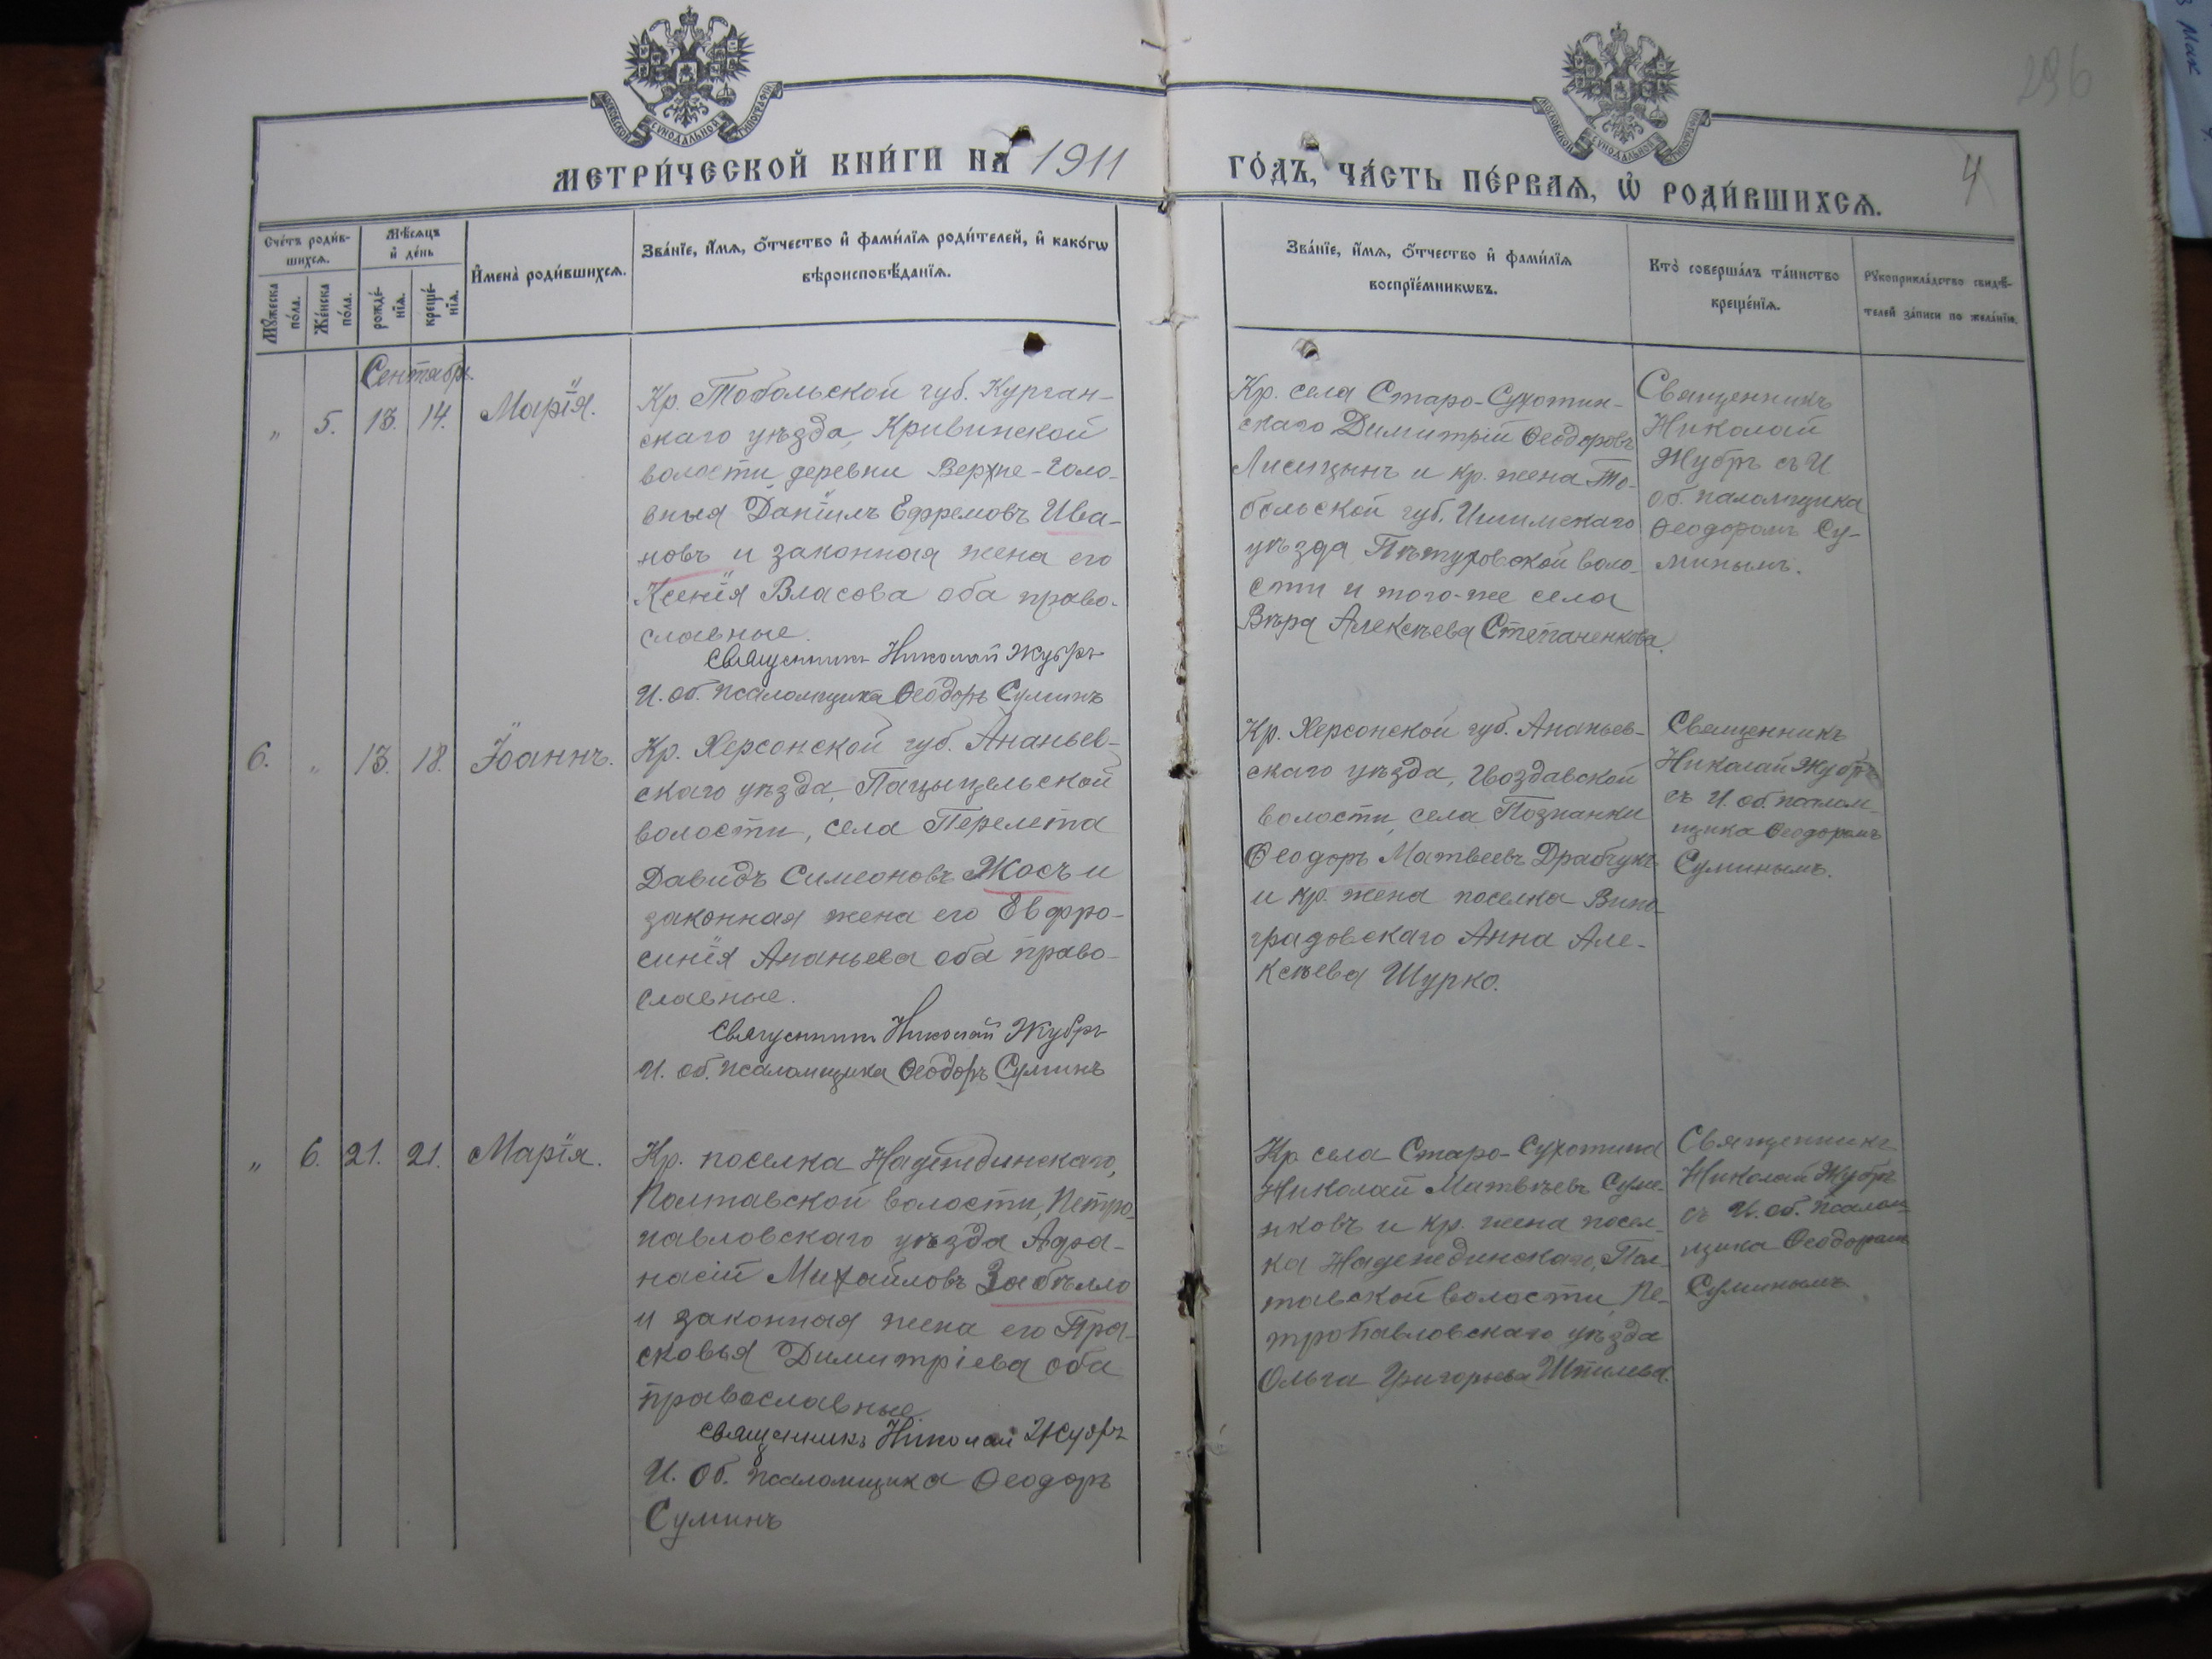 296
4
МОСКОВСКОЙ СѴНОДАЛЬНОЙ ТИПОГРАФІИ
МОСКОВСКОЙ СѴНОДАЛЬНОЙ ТИПОГРАФІИ
МЕТРИ́ЧЕСКОЙ КНИ́ГИ НА 1911
ГО́ДЪ, ЧА́СТЬ ПЕ́РВАѦ, Ѡ РОДИ́ВШИХСѦ.
Сче́тъ роди́в-
шихсѧ.
Мꙋ́жеска
по́ла.
Же́нска
по́ла.
Мѣ́сѧцъ
и҆ де́нь
рожде́-
нїѧ.
креще́-
нїѧ.
И҆мена̀ роди́вшихсѧ.
Зва́нїе, и҆́мѧ, ѻ҆́тчество и҆ фами́лїѧ роди́телей, и҆ како́гѡ
вѣроисповѣ́данїѧ.
Зва́нїе, и҆́мѧ, ѻ҆́тчество и҆ фами́лїѧ
воспрїе́мникѡвъ.
Кто̀ соверша́лъ та́инство
креще́нїѧ.
Рꙋкоприкла́дство свидѣ́-
телей за́писи по жела́нїю.
Сентябрь.
„ 5. 13. 14. Марія.
Кр. Тобольской губ. Курган-
скаго уѣзда, Кривинской
волости, деревни Верхне-Голо-
вныя Даніилъ Ефремовъ Ива-
новъ и законная жена его
Ксенія Власова оба право-
славные.
Священникъ Николай Жубръ
И. об. псаломщика Ѳеодоръ Суминъ
Кр. села Старо-Сухотин-
скаго Димитрій Ѳеодоровъ
Лисицынъ и кр. жена То-
больской губ. Ишимскаго
уѣзда Пѣтуховской воло-
сти и того-же села
Вѣра Алексѣева Степаненкова.
Священникъ
Николай
Жубръ съ И.
об. псаломщика
Ѳеодоромъ Су-
минымъ.
6. „ 13. 18. Іоаннъ.
Кр. Херсонской губ. Ананьев-
скаго уѣзда, Пасицельской
волости, села Перелета
Давидъ Симеоновъ Жосъ и
законная жена его Евфро-
синія Ананьева оба право-
славные.
Священникъ Николай Жубръ
И. об. псаломщика Ѳеодоръ Суминъ
Кр. Херсонской губ. Ананьев-
скаго уѣзда, Гвоздавской
волости, села Познанки
Ѳеодоръ Матвеевъ Драбчукъ
и кр. жена поселка Вино-
градовскаго Анна Але-
ксѣева Шурко.
Священникъ
Николай Жубръ
съ И. об псалом-
щика Ѳеодоромъ
Суминымъ.
„ 6. 21. 21. Марія.
Кр. поселка Надеждинскаго,
Полтавской волости, Петро-
павловскаго уѣзда Афа-
насій Михайловъ Забѣлло
и законная жена его Пра-
сковья Димитріева оба
православные
Священникъ Николай Жубръ
И. Об. псаломщика Ѳеодоръ
Суминъ
Кр села Старо-Сухотина
Николай Матвѣевъ Суме-
нковъ и кр. жена посел-
ка Надеждинскаго, Пол-
тавской волости, Пе-
тропавловскаго уѣзда
Ольга Григорьева
Священникъ
Николай Жубръ
съ И. об. псалом-
щика Ѳеодоромъ
Суминымъ